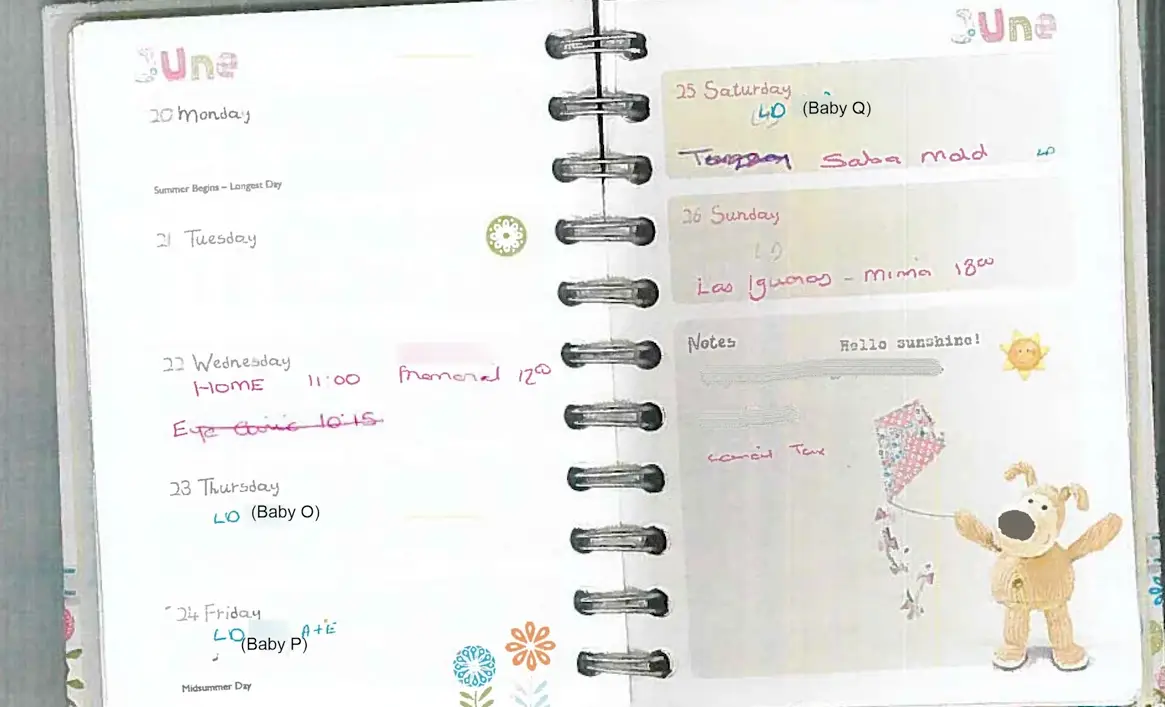 June
20 Monday
Summer Begins – Longest Day
21 Tuesday
22 Wednesday
HOME 11:00 12⁰⁰
Eye Clinic 10:15
23 Thursday
LD (Baby O)
24 Friday
LD A+E
(Baby P)
Midsummer Day
June
25 Saturday
LD (Baby Q)
Salsa LD
26 Sunday
LD
Las Iguanas - 18⁰⁰
Notes Hello sunshine!
Tax